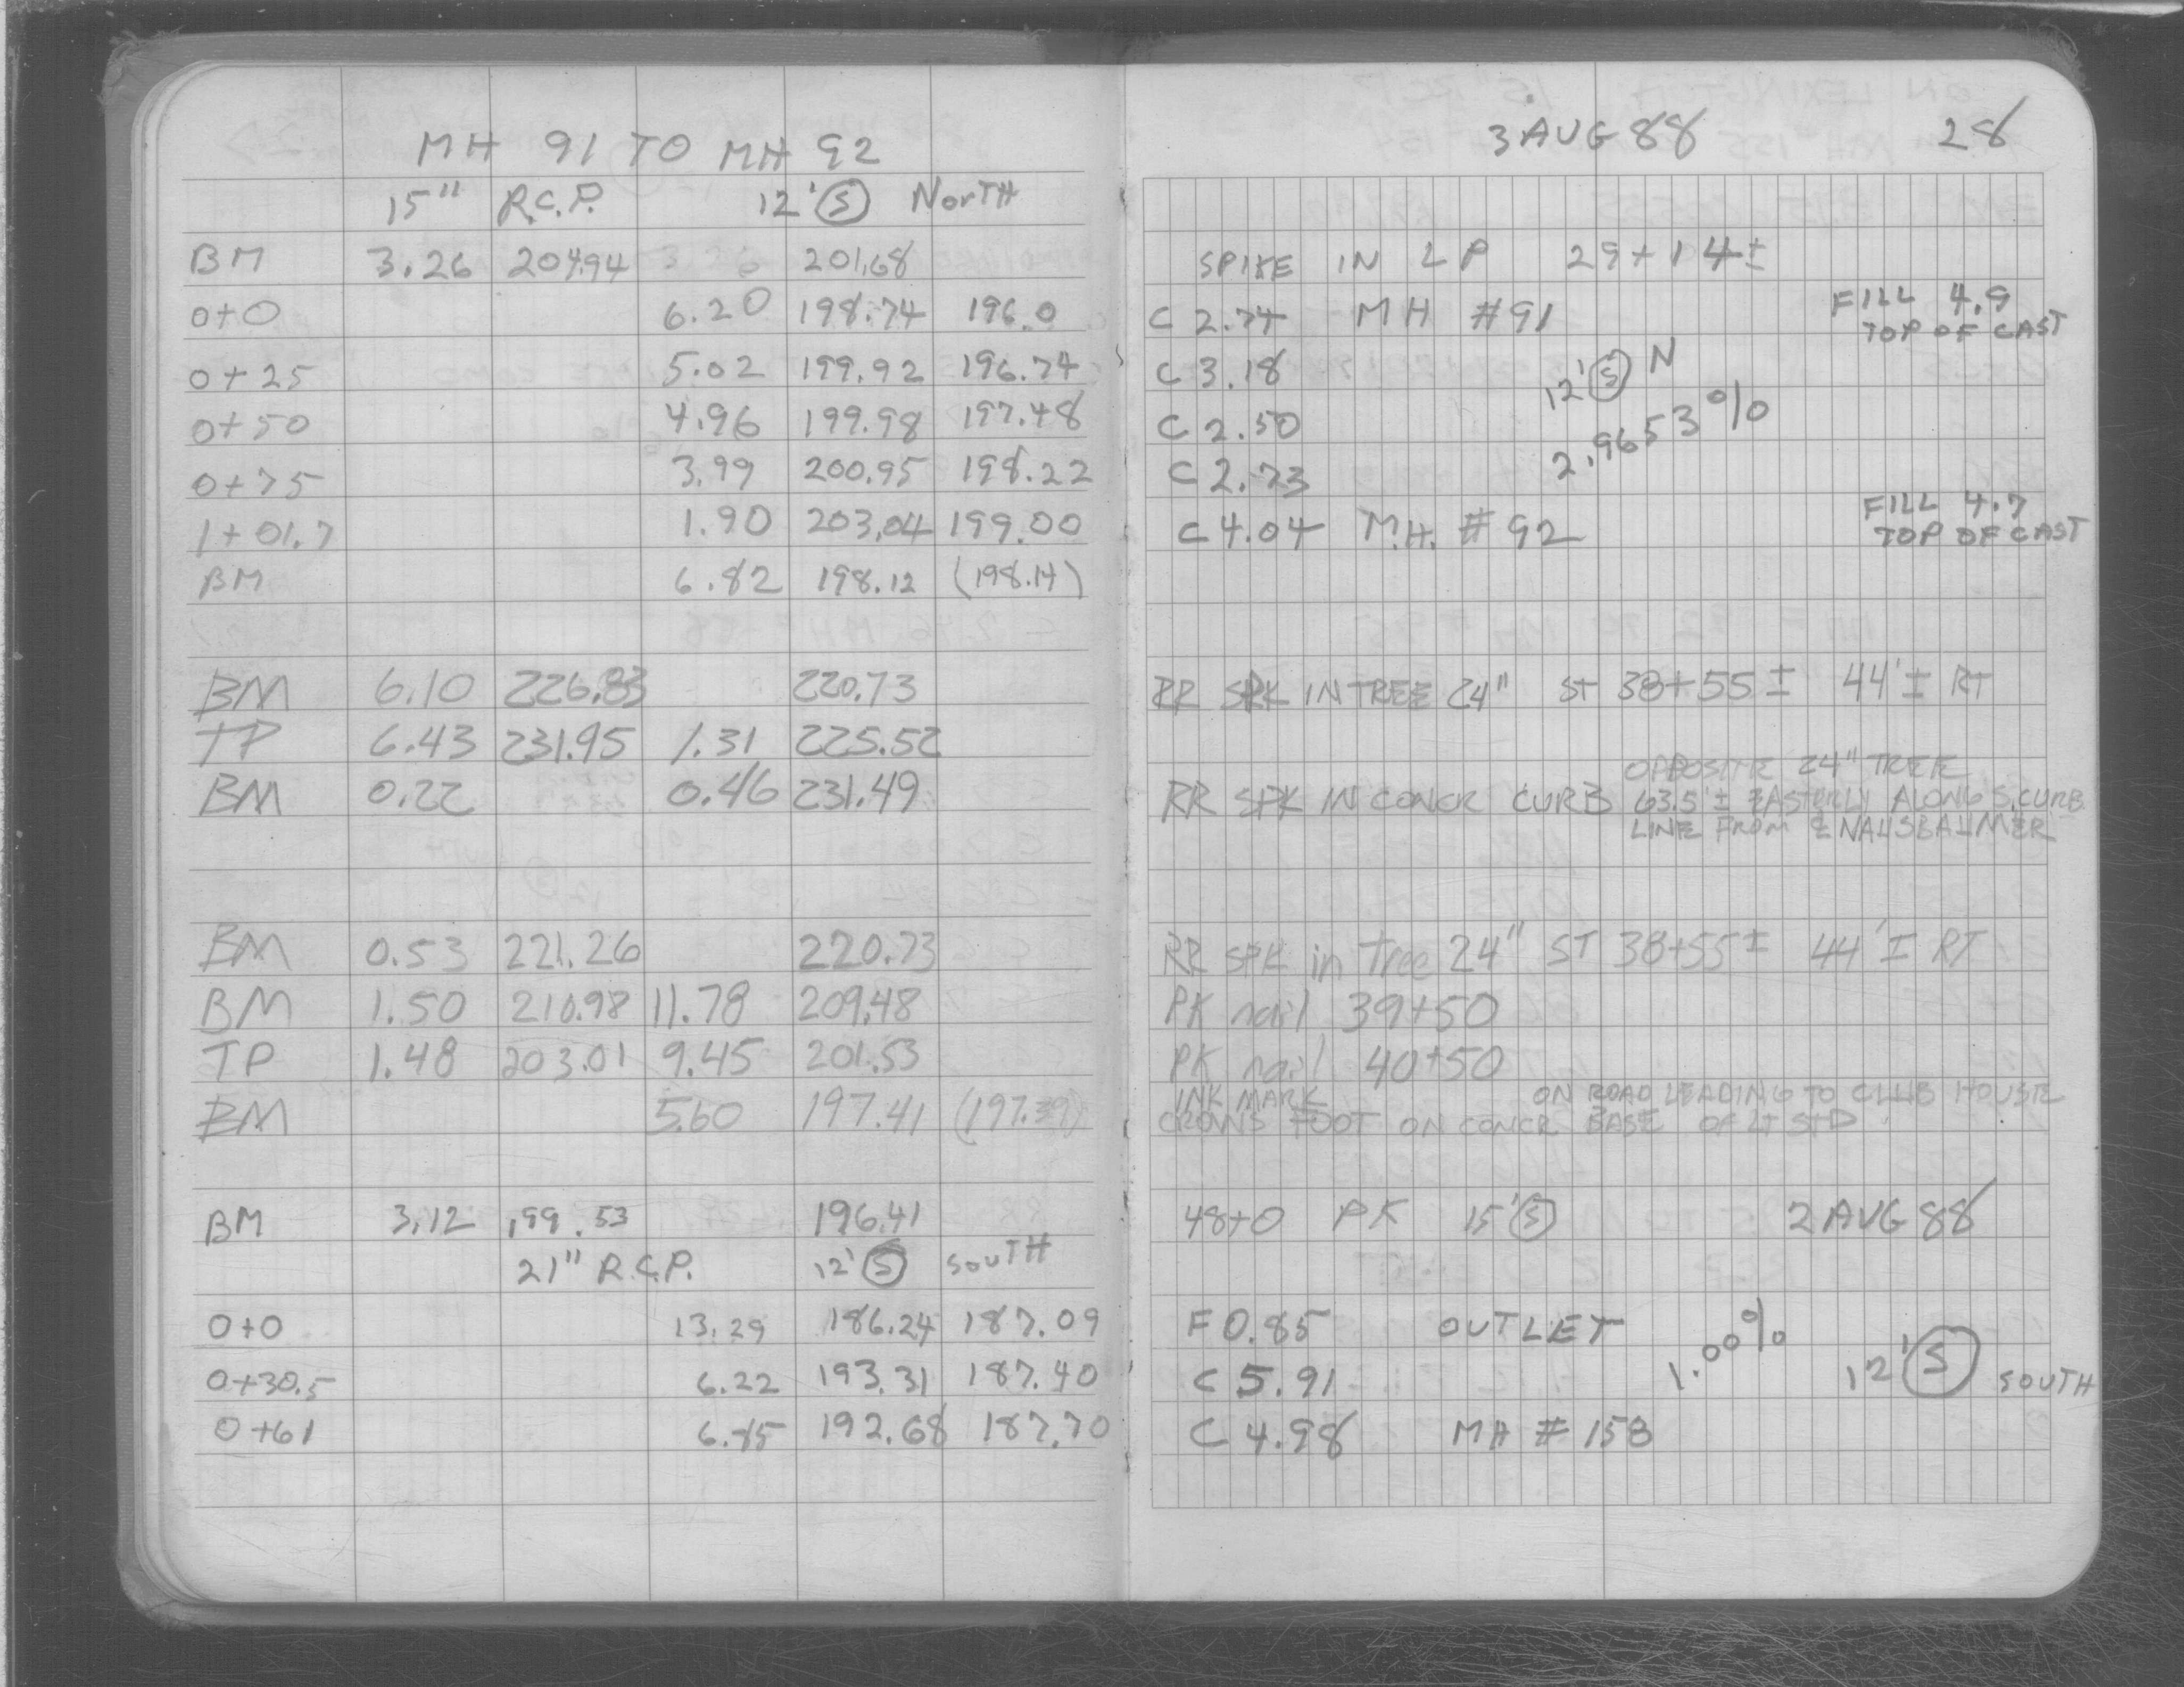 MH 91 TO MH 92
15" R.C.P. 12' Ⓢ NORTH
BM 3.26 204.94 201.68
0+0 6.20 198.74 196.0
0+25 5.02 199.92 196.74
0+50 4.96 199.98 197.48
0+75 3.99 200.95 198.22
1+01.7 1.90 203.04 199.00
BM 6.82 198.12 (198.14)
BM 6.10 226.83 220.73
TP 6.43 231.95 1.31 225.52
BM 0.22 0.46 231.49
BM 0.53 221.26 220.73
BM 1.50 210.98 11.78 209.48
TP 1.48 203.01 9.45 201.53
BM 5.60 197.41 (197.39)
BM 3.12 199.53 196.41
21" R.C.P. 12' Ⓢ SOUTH
0+0 13.29 186.24 187.09
0+30.5 6.22 193.31 187.40
0+61 6.85 192.68 187.70
3 AUG 88 28
SPIKE IN LP 29+14±
C 2.74 MH #91 FILL 4.9
TOP OF CAST
C 3.18 12' Ⓢ N
C 2.50 2.9653%
C 2.73
C 4.04 M.H. #92 FILL 4.7
TOP OF CAST
RR SPK IN TREE 24" ST 38+55± 44'± RT
OPPOSITE 24" TREE
RR SPK IN CONCR CURB 63.5'± EASTERLY ALONG S. CURB
LINE FROM ℄ NAUSBAUMER
RR SPK in Tree 24" ST 38+55± 44'± RT
PK nail 39+50
PK nail 40+50
INK MARK ON ROAD LEADING TO CLUB HOUSE
CROWS FOOT ON CONCR BASE OF LT STD
48+0 PK 15' Ⓢ 2 AUG 88
F 0.85 OUTLET 1.00%
C 5.91 12' Ⓢ SOUTH
C 4.98 MH #158